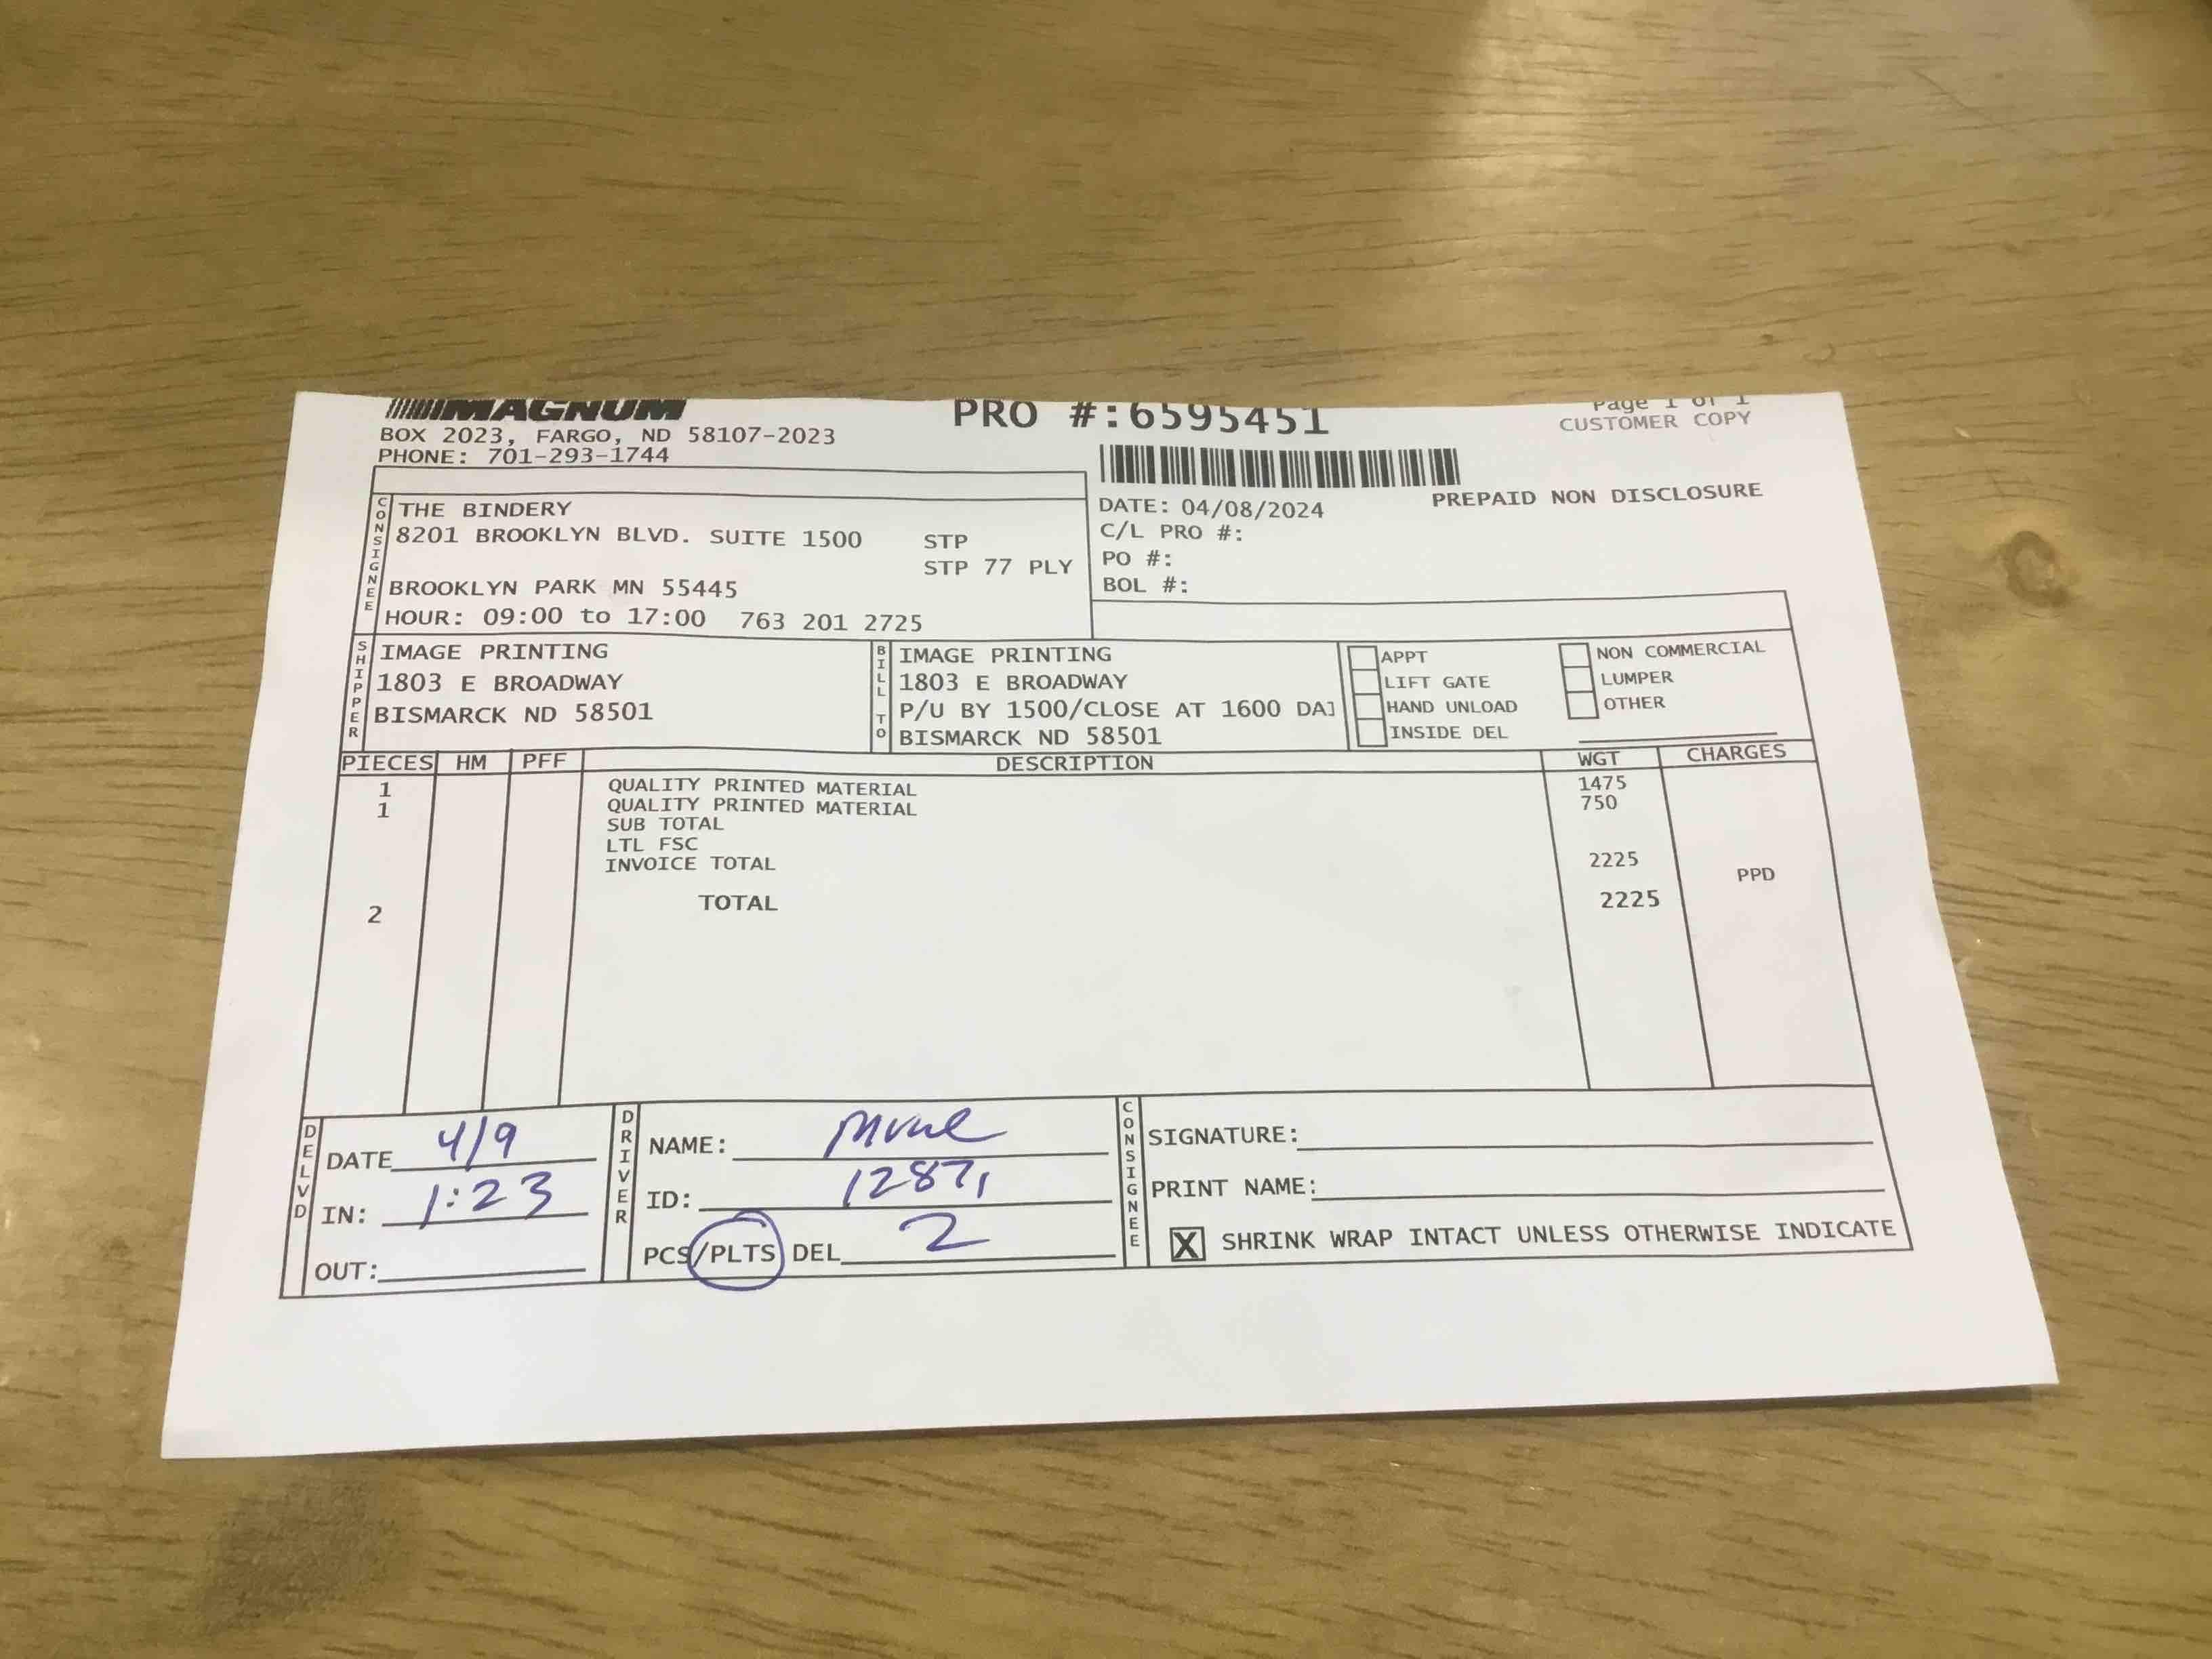 MAGNUM
BOX 2023, FARGO, ND 58107-2023
PHONE: 701-293-1744
PRO #:6595451
Page 1 of 1
CUSTOMER COPY
DATE: 04/08/2024
PREPAID NON DISCLOSURE
C/L PRO #:
PO #:
BOL #:
CONSIGNEE
THE BINDERY
8201 BROOKLYN BLVD. SUITE 1500 STP
STP 77 PLY
BROOKLYN PARK MN 55445
HOUR: 09:00 to 17:00 763 201 2725
SHIPPER
IMAGE PRINTING
1803 E BROADWAY
BISMARCK ND 58501
BILL TO
IMAGE PRINTING
1803 E BROADWAY
P/U BY 1500/CLOSE AT 1600 DA
BISMARCK ND 58501
APPT
LIFT GATE
HAND UNLOAD
INSIDE DEL
NON COMMERCIAL
LUMPER
OTHER
PIECES HM PFF DESCRIPTION WGT CHARGES
1 QUALITY PRINTED MATERIAL 1475
1 QUALITY PRINTED MATERIAL 750
SUB TOTAL
LTL FSC
INVOICE TOTAL 2225
PPD
2 TOTAL 2225
DELVD
DATE 4/9
IN: 1:23
OUT:
DRIVER
NAME:
ID: 12871
PCS/PLTS DEL 2
CONSIGNEE
SIGNATURE:
PRINT NAME:
X SHRINK WRAP INTACT UNLESS OTHERWISE INDICATE